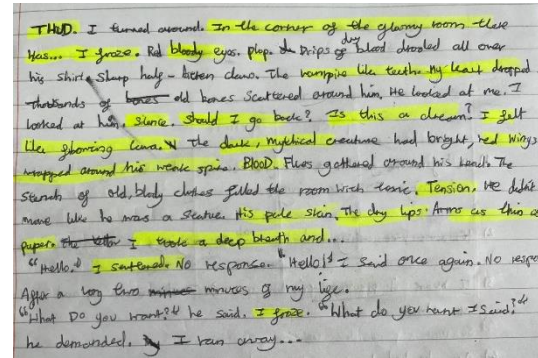 THUD. I turned around. In the corner of the gloomy room there
was... I froze. Red bloody eyes. plop. Drips of dry blood drooled all over
his shirt. Sharp half-bitten claws. The vampire like teeth. My heart dropped
thousands of old bones scattered around him. He looked at me. I
looked at him. silence. Should I go back? Is this a dream? I felt
like glooming lava. The dark, mythical creature had bright, red wings
wrapped around his weak spine. BLOOD. Flies gathered around his head. The
stench of old, blody clothes filled the room with toxic. Tension. He didn't
move like he was a statue. His pale skin. The dry lips. Arms as thin as
paper. I took a deep breath and...
"Hello." I stuttered. No response. "Hello!" I said once again. No respo
After a long two minutes of my life.
"What Do you want?" he said. I froze. "What do you want I said?"
he demanded. I ran away...